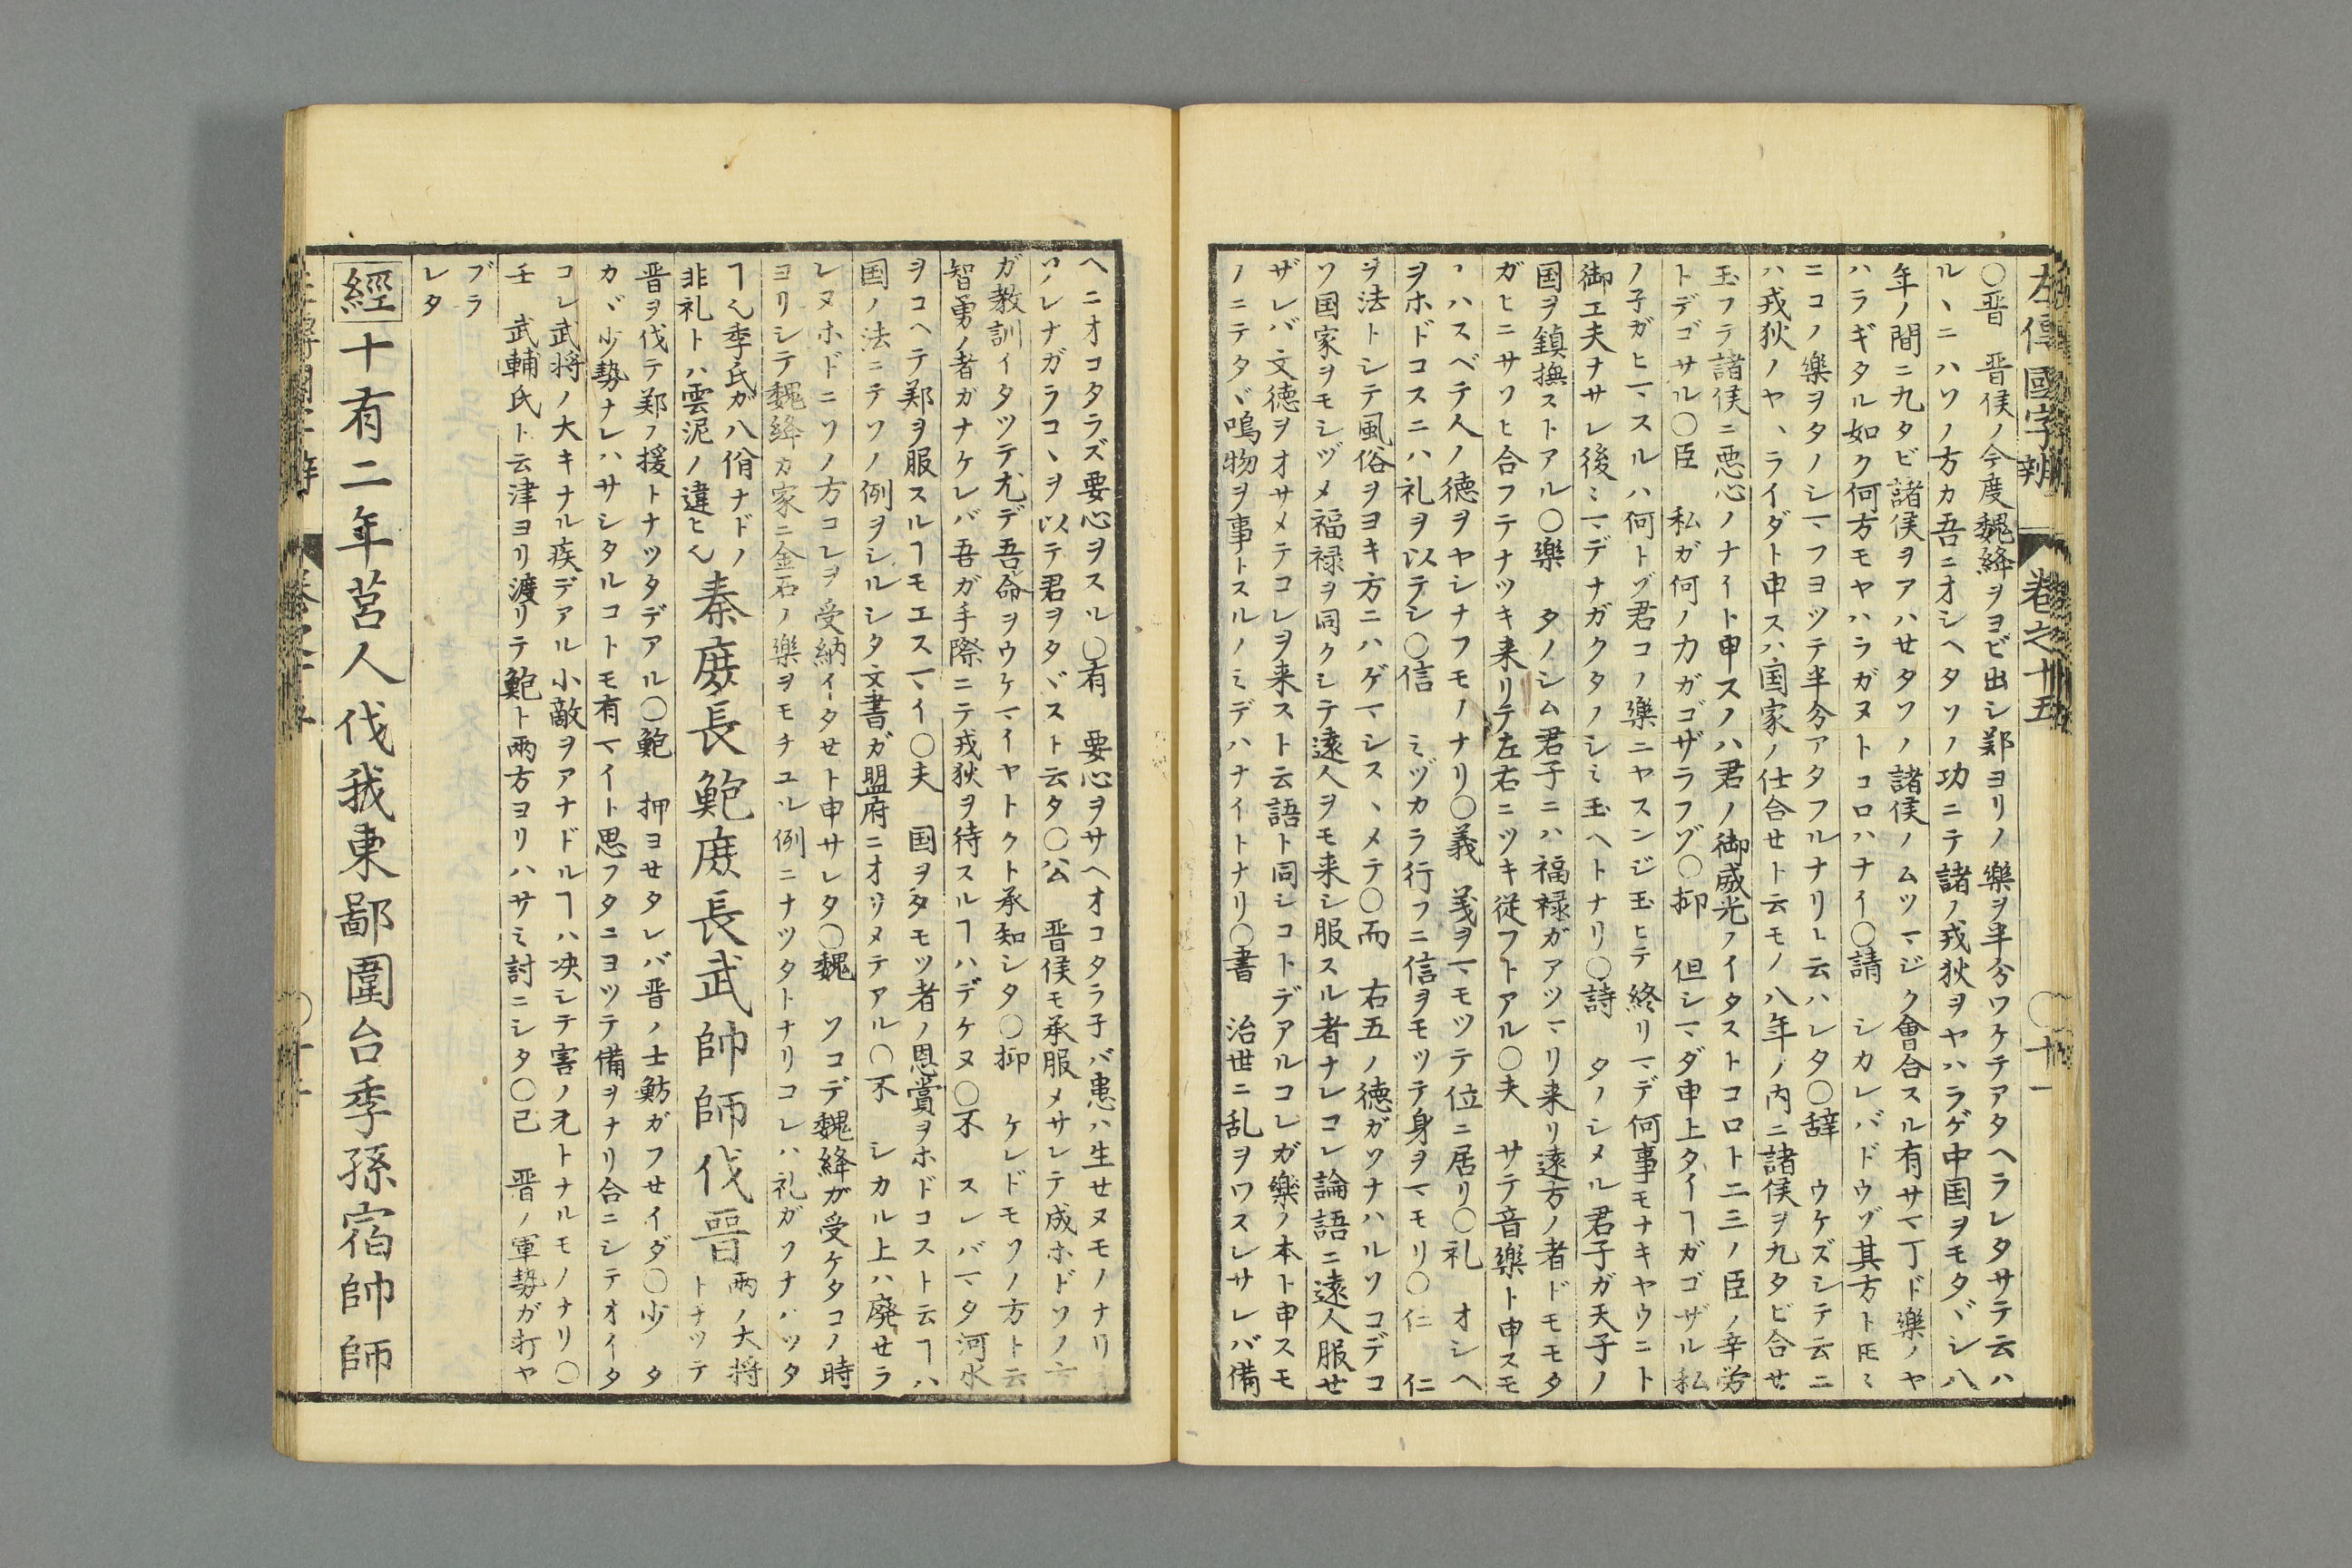 左傳國字辨 卷之十五 〇十一
〇晋 晋侯ノ今度魏絳ヲヨビ出シ鄭ヨリノ樂ヲ半分ワケテアタヘラレタサテ云ハ
ルヽニハソノ方カ吾ニオシヘタソノ功ニテ諸ノ戎狄ヲヤハラゲ中国ヲモタヾシ八
年ノ間ニ九タビ諸侯ヲアハセタソノ諸侯ノムツマジク會合スル有サマ丁ド樂ノヤ
ハラギタル如ク何方モヤハラガヌトコロハナイ〇請 シカレバドウゾ其方トトモニ
ニコノ樂ヲタノシマフヨツテ半分アタフルナリト云ハレタ〇辞 ウケズシテ云ニ
ハ戎狄ノヤヽライダト申スハ国家ノ仕合せト云モノ八年ノ内ニ諸侯ヲ九タビ合せ
玉フテ諸侯ニ悪心ノナイト申スノハ君ノ御威光ノイタストコロト二三ノ臣ノ辛労
トデゴサル〇臣 私ガ何ノ力ガゴザラフゾ〇抑 但シマダ申上タイヿガゴザル私
ノ子ガヒマスルハ何トゾ君コノ樂ニヤスンジ玉ヒテ終リマデ何事モナキヤウニト
御工夫ナサレ後ミマデナガクタノシミ玉ヘトナリ〇詩 タノシメル君子ガ天子ノ
国ヲ鎮撫ストアル〇樂 タノシム君子ニハ福禄ガアツマリ来リ遠方ノ者ドモモタ
ガヒニサソヒ合フテナツキ来リテ左右ニツキ従フトアル〇夫 サテ音樂ト申スモ
ヽハスベテ人ノ德ヲヤシナフモノナリ〇義 義ヲマモツテ位ニ居リ〇礼 オシヘ
ヲホドコスニハ礼ヲ以テシ〇信 ミヅカラ行フニ信ヲモツテ身ヲマモリ〇仁 仁
ヲ法トシテ風俗ヲヨキ方ニハゲマシスヽメテ〇而 右五ノ德ガソナハルソコデコ
ソ国家ヲモシヅメ福禄ヲ同クシテ遠人ヲモ来シ服スル者ナレコレ論語ニ遠人服せ
ザレバ文德ヲオサメテコレヲ来スト云語ト同シコトデアルコレガ樂ノ本ト申スモ
ノニテタヾ鳴物ヲ事トスルノミデハナイトナリ〇書 治世ニ乱ヲワスレサレバ備
ヘニオコタラズ要心ヲスル〇有 要心ヲサヘオコタラ子バ患ハ生せヌモノナリ
ソレナガラコヽヲ以テ君ヲタヾスト云タ〇公 晋侯モ承服メサレテ成ホドソノ方
ガ教訓イタツテ尤デ吾命ヲウケマイヤトクト承知シタ〇抑 ケレドモソノ方ト云
智勇ノ者ガナケレバ吾ガ手際ニテ戎狄ヲ待スルヿハデケヌ〇不 スレバマタ河水
ヲコヘテ鄭ヲ服スルヿモエスマイ〇夫 国ヲタモツ者ノ恩賞ヲホドコスト云ヿハ
国ノ法ニテソノ例ヲシルシタ文書ガ盟府ニオサメテアル〇不 シカル上ハ廃せラ
レヌホドニソノ方コレヲ受納イタせト申サレタ〇魏 ソコデ魏絳ガ受ケタコノ時
ヨリシテ魏絳カ家ニ金石ノ樂ヲモチユル例ニナツタトナリコレハ礼ガソナハツタ
ヿ也季氏ガ八佾ナドノ
非礼トハ雲泥ノ違ヒ也
秦庶長鮑庶長武帥師伐晋
両ノ大将
トナツテ
晋ヲ伐テ鄭ノ援トナツタデアル〇鮑 押ヨせタレバ晋ノ士魴ガフせイダ〇少 タ
カヾ少勢ナレハサシタルコトモ有マイト思フタニヨツテ備ヲナリ合ニシテオイタ
コレ武将ノ大キナル疾デアル小敵ヲアナドルヿハ决シテ害ノ元トナルモノナリ〇
壬 武輔氏ト云津ヨリ渡リテ鮑ト両方ヨリハサミ討ニシタ〇己 晋ノ軍勢ガ打ヤ
ブラ
レタ
經十有二年莒人伐我東鄙圍台季孫宿帥師